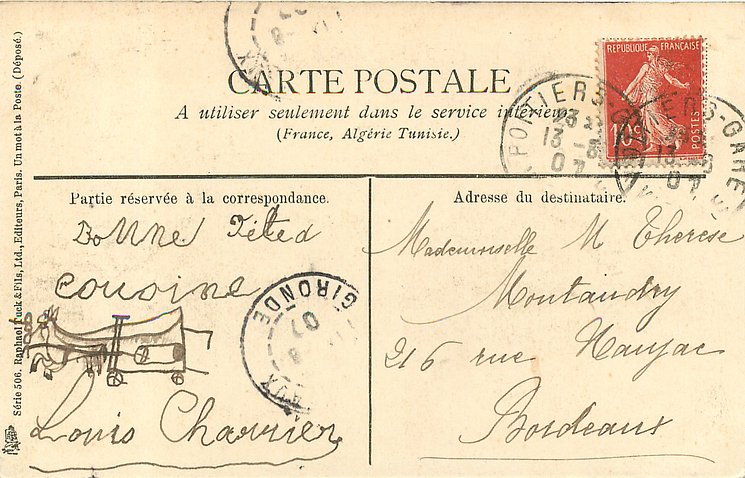 CARTE POSTALE
A utiliser seulement dans le service intérieur
(France, Algérie Tunisie.)
REPUBLIQUE FRANÇAISE
10c
POSTES
POITIERS-GARE
13 -8
07
ERS-GARE
13 -8
07
Partie réservée à la correspondance.
Bonne fête
cousine
Louis Charrier
GIRONDE
07
Adresse du destinataire.
Mademoiselle M Therese
Montaudry
216 rue Naujac
Bordeaux
Série 506. Raphael Tuck & Fils, Ltd., Editeurs, Paris. Un mot à la Poste. (Déposé.)